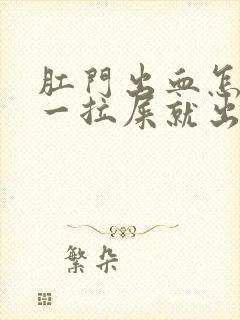 肛門出血怎
一拉屎就出
繁朵